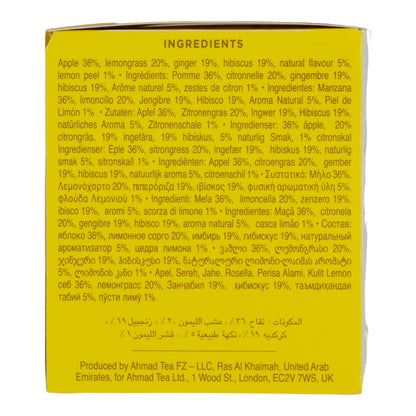 INGREDIENTS
Apple 36%, lemongrass 20%, ginger 19%, hibiscus 19%, natural flavour 5%,
lemon peel 1% • Ingrédients: Pomme 36%, citronnelle 20%, gingembre 19%,
hibiscus 19%, Arôme naturel 5%, zestes de citron 1% • Ingredientes: Manzana
36%, limoncillo 20%, Jengibre 19%, Hibisco 19%, Aroma Natural 5%, Piel de
Limón 1% • Zutaten: Apfel 36%, Zitronengras 20%, Ingwer 19%, Hibiscus 19%,
natürliches Aroma 5%, Zitronenschale 1% • Ingredienser: 36% äpple, 20%
citrongräs, 19% ingefära, 19% hibiskus, 5% naturlig Smak, 1% citronskal
Ingredienser: Eple 36%, sitrongress 20%, ingefær 19%, hibiskus 19%, naturlig
smak 5%, sitronskall 1% • Ingrediënten: Appel 36%, citroengras 20%, gember
19%, hibiscus 19%, natuurlijk aroma 5%, citroenschil 1% • Συστατικά: Μήλο 36%,
Λεμονόχορτο 20%, πιπερόριζα 19%, ιβίσκος 19%, φυσική αρωματική ύλη 5%,
φλούδα Λεμονιού 1% • Ingredienti: Mela 36%, limoncella 20%, zenzero 19%,
ibisco 19%, aromi 5%, scorza di limone 1% • Ingredientes: Maçã 36%, citronela
20%, gengibre 19%, hibisco 19%, aroma natural 5%, casca limão 1% • Состав:
яблоко 36%, лимонное сорго 20%, имбирь 19%, гибискус 19%, натуральный
ароматизатор 5%, цедра лимона 1% • ვაშლი 36%, ლემონგრასი 20%,
ჯინჯერი 19%, ჰიბისკუსი 19%, ნატურალური ლიმონი-ლაიმის არომატი
5%, ლიმონის კანი 1% • Apel, Sereh, Jahe, Rosella, Perisa Alami, Kulit Lemon
себ 36%, лемонграсс 20%, Занчабил 19%, ҳибискус 19%, таъмдиҳандаи
табиӣ 5%, пӯсти лимӯ 1%
المكونات: تفاح ٣٦٪، عشب الليمون ٢٠٪، زنجبيل ١٩٪،
كركديه ١٩٪، نكهة طبيعية ٥٪، قشر الليمون ١٪
Produced by Ahmad Tea FZ – LLC, Ras Al Khaimah, United Arab
Emirates, for Ahmad Tea Ltd., 1 Wood St., London, EC2V 7WS, UK